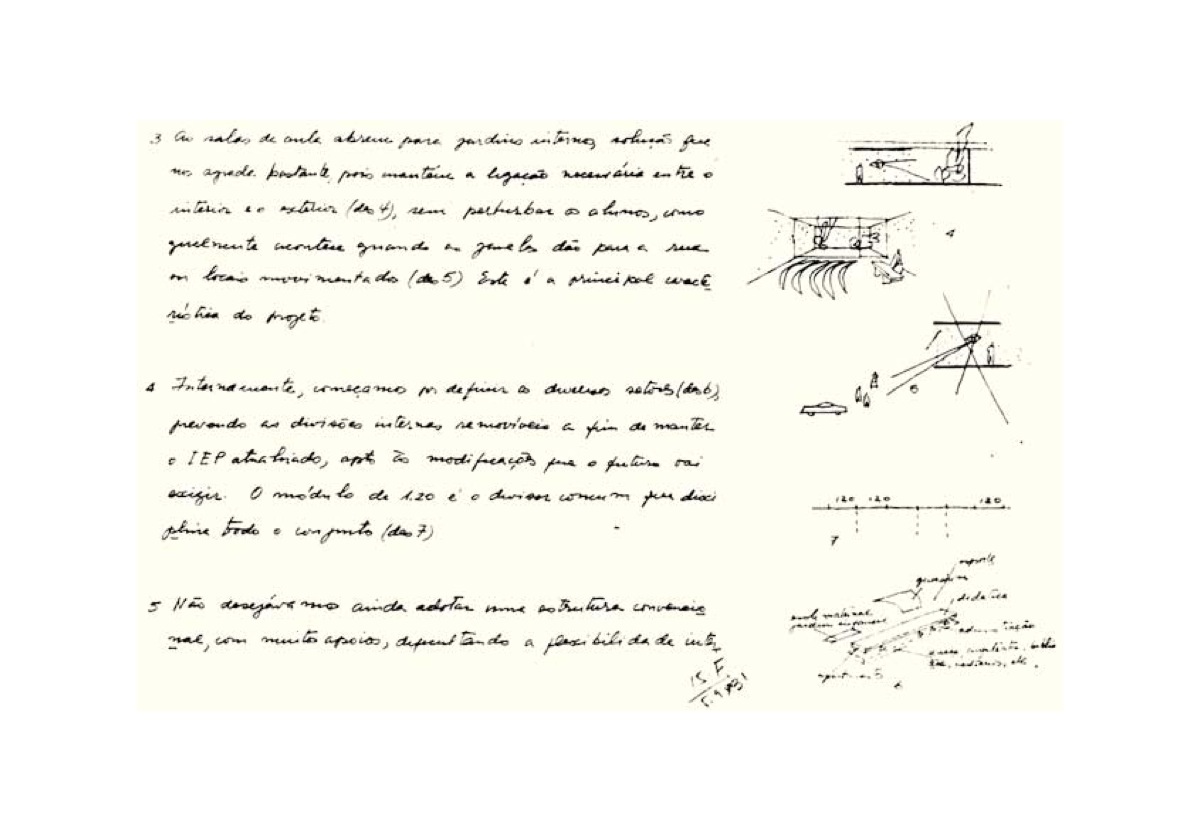 3 As salas de aula abrem para jardins internos, solução que
nos agrada bastante, pois mantém a ligação necessária entre o
interior e o exterior (des 4), sem perturbar os alunos, como
geralmente acontece quando as janelas dão para a rua
ou locais movimentados (des 5) Este é a principal caracte
rística do projeto.
4
5
4 Internamente, começamos por definir os diversos setores (des 6),
prevendo as divisões internas removíveis a fim de manter
o IEP atualizado, apto às modificações que o futuro vai
exigir. O módulo de 1.20 é o divisor comum que disci
plina todo o conjunto (des 7)
120 120 120
7
5 Não desejávamos ainda adotar uma estrutura convencio
nal, com muitos apoios, dificultando a flexibilidade inter
esporte
ginasium
didática
escola maternal
jardim
administração
6